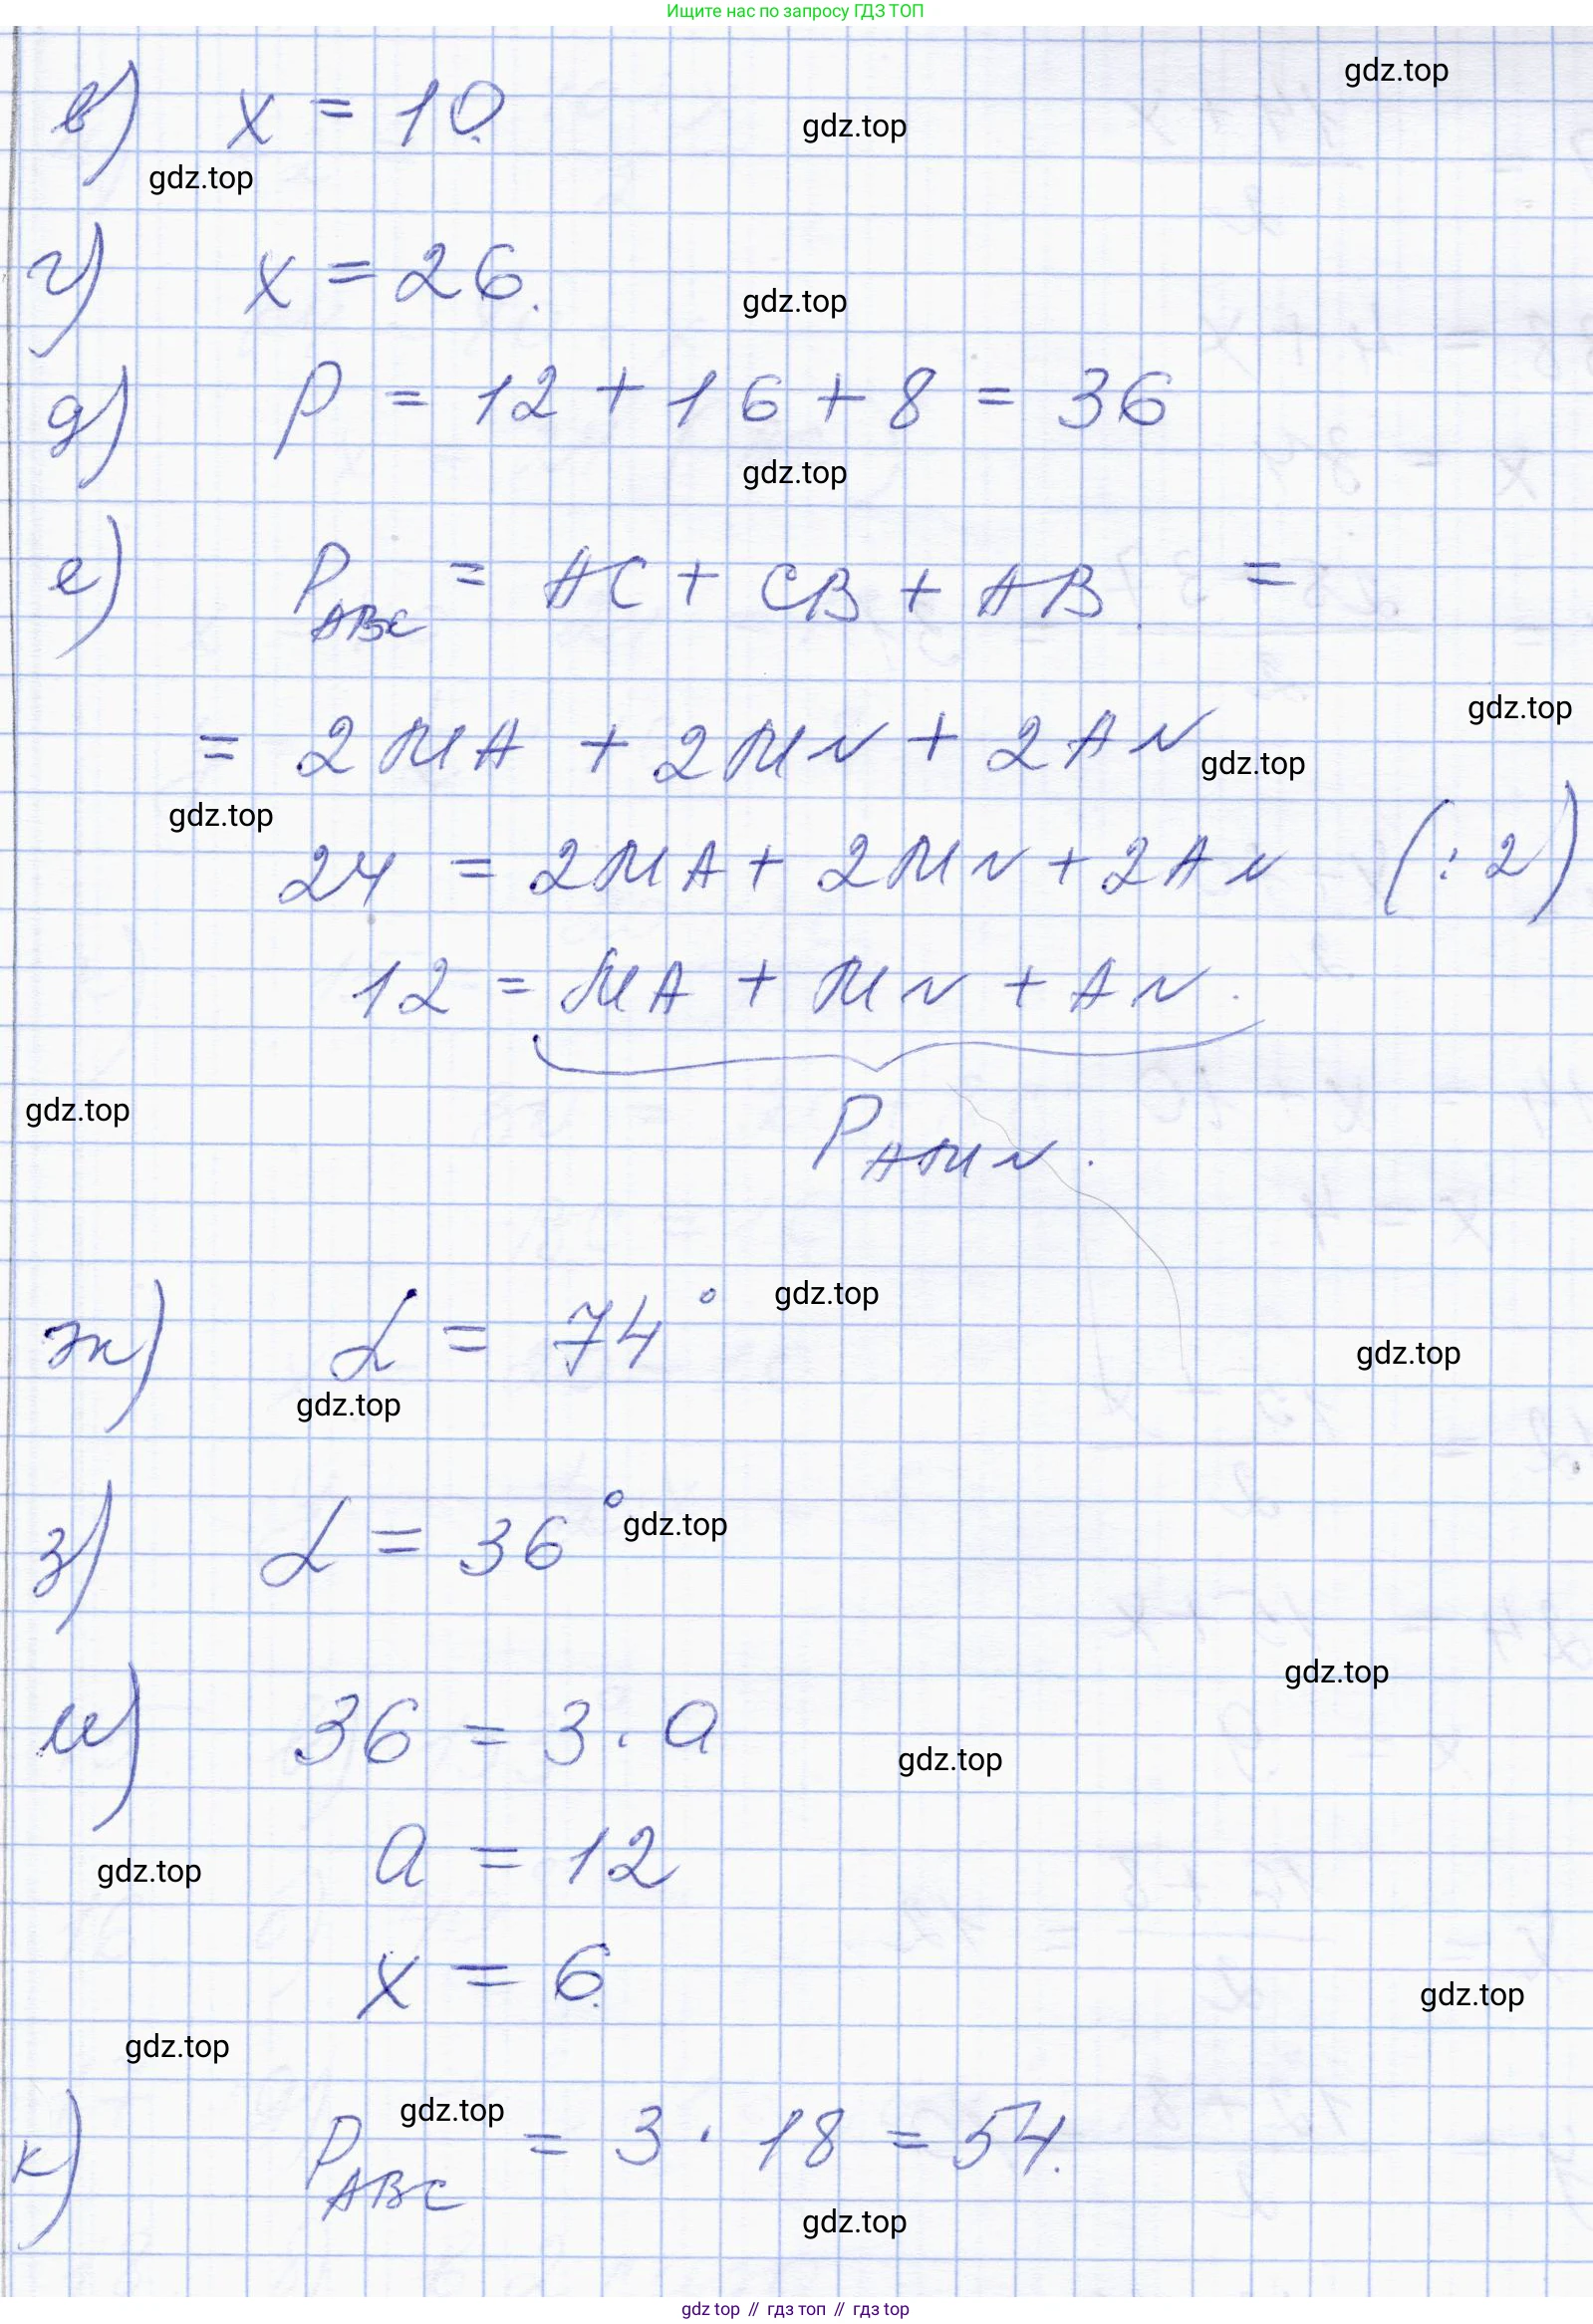 Ищите нас по запросу ГДЗ ТОП
gdz.top
в) x = 10.
gdz.top
gdz.top
г) x = 26.
gdz.top
д) P = 12 + 16 + 8 = 36
gdz.top
е) P_ABC = AC + CB + AB. =
gdz.top
= 2MA + 2MN + 2AN
gdz.top
gdz.top
24 = 2MA + 2MN + 2AN (: 2)
12 = MA + MN + AN.
gdz.top
P_AMN.
ж) α = 74°
gdz.top
gdz.top
gdz.top
з) α = 36°
gdz.top
gdz.top
и) 36 = 3 · a
gdz.top
a = 12
gdz.top
x = 6.
gdz.top
gdz.top
gdz.top
к) P_ABC = 3 · 18 = 54.
gdz.top
gdz top // гдз топ // gdz top